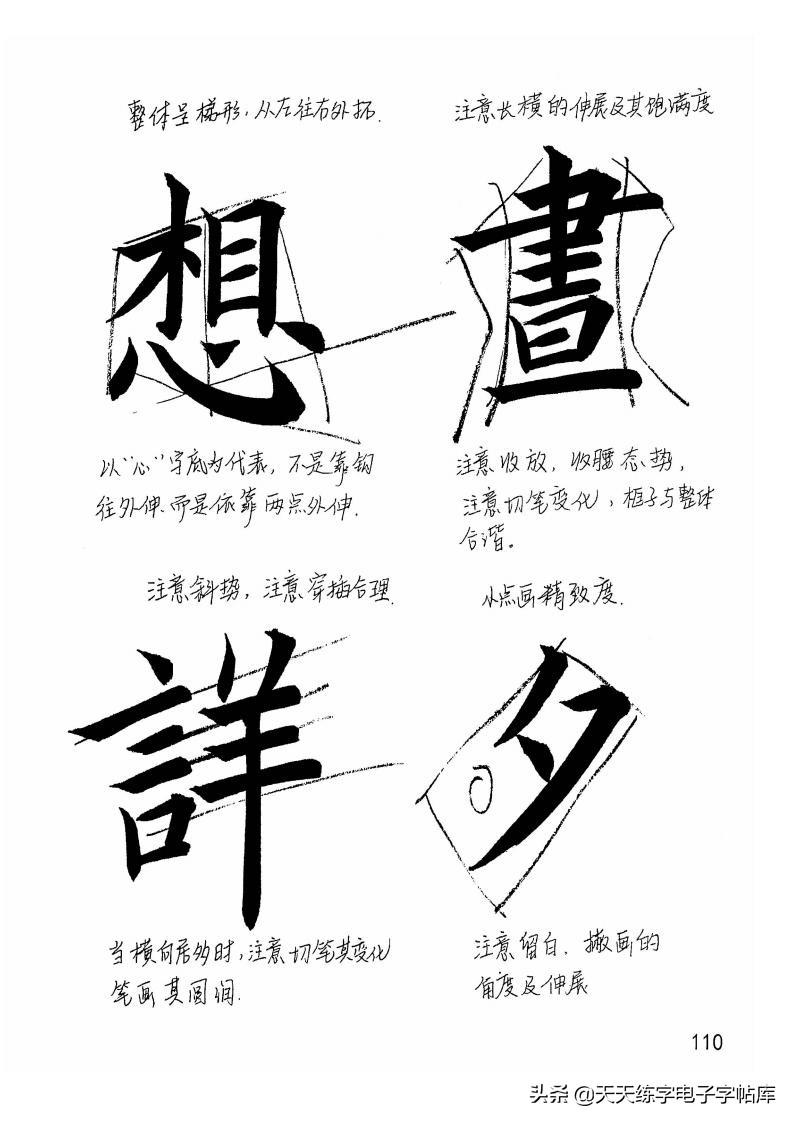 整体呈梯形，从左往右外拓.
注意长横的伸展及其饱满度
想
晝
以“心”字底为代表，不是靠钩
往外伸.而是依靠两点外伸.
注意收放，收腰态势，
注意切笔变化，框子与整体
合谐。
注意斜势，注意穿插合理.
从点画精致度.
詳
夕
当横向居多时，注意切笔其变化
笔画其圆润.
注意留白，撇画的
角度及伸展
110
头条 @天天练字电子字帖库